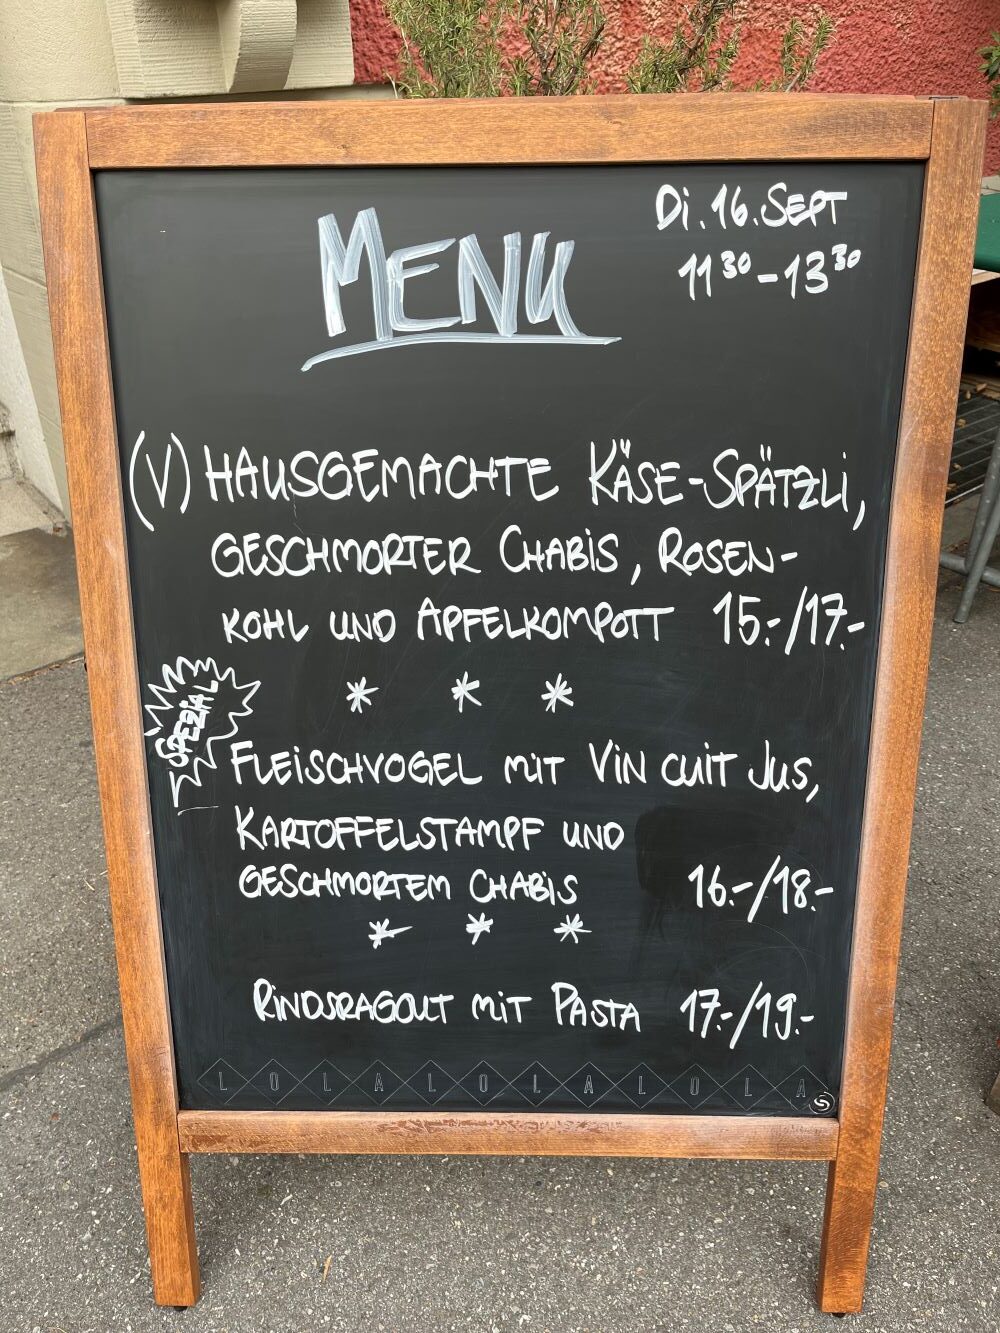 Di. 16. SEPT
11³⁰ - 13³⁰
MENU
(V) HAUSGEMACHTE KÄSE-SPÄTZLI,
GESCHMORTER CHABIS, ROSEN-
KOHL UND APFELKOMPOTT 15.-/17.-
* * *
SPEZIAL
FLEISCHVOGEL MIT VIN CUIT JUS,
KARTOFFELSTAMPF UND
GESCHMORTEM CHABIS 16.-/18.-
* * *
RINDSRAGOUT MIT PASTA 17.-/19.-
LOLALOLALOLA